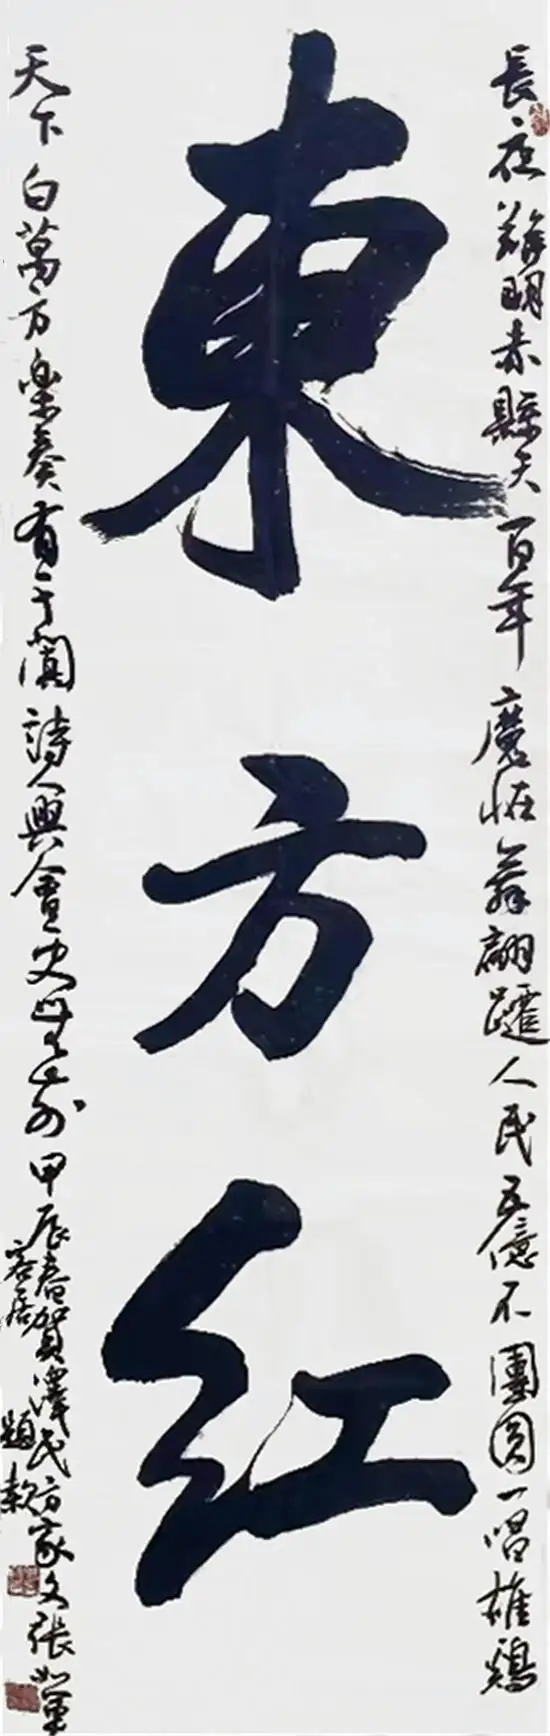 長夜難明赤縣天百年魔怪舞翩躚人民五億不團圓一唱雄鷄
東方红
天下白萬方樂奏有于闐詩人興會更無前甲辰春賀澤民方家文張
題款